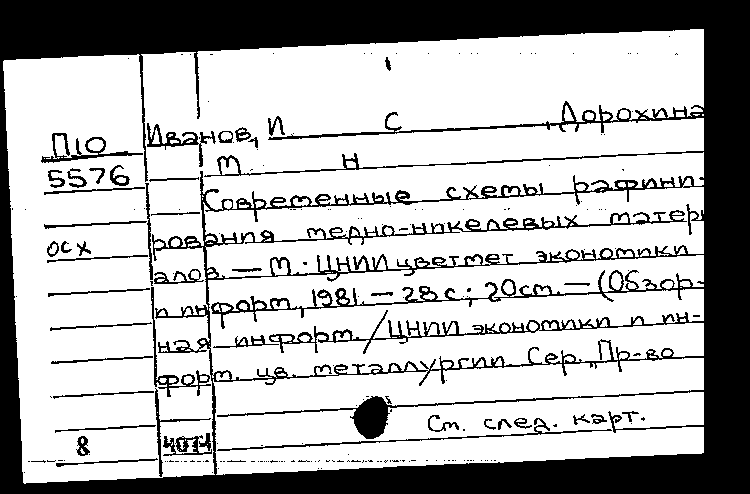 П10 Иванов, И С , Дорохина
5576 М Н
Современные схемы рафини-
осх рования медно-никелевых матери
алов. — М.: ЦНИИцветмет экономики
и информ., 1981. — 28с; 20см. — (Обзор-
ная информ. / ЦНИИ экономики и ин-
форм. цв. металлургии. Сер. „Пр-во
См. след. карт.
8